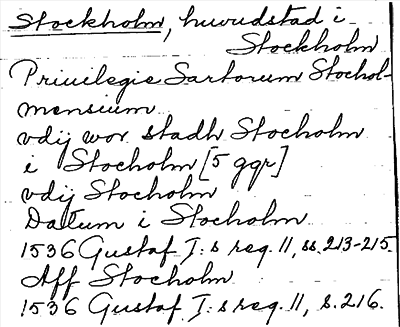 Stockholm, huvudstad i
Stockholm
Priuilegie Sartorum Stochol-
mensium
vdij wor stadh Stocholm
i Stocholm [5 ggr]
vdij Stocholm
Datum i Stocholm
1536 Gustaf I:s reg. 11, ss. 213-215.
Aff Stocholm
1536 Gustaf I:s reg. 11, s. 216.